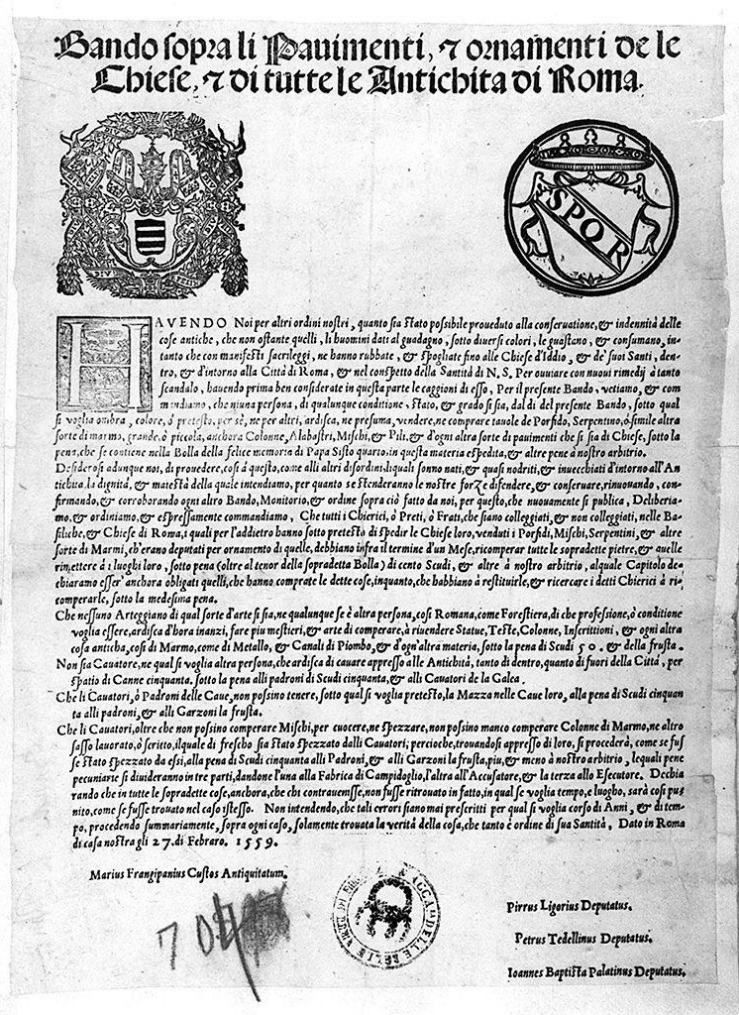 Bando sopra li Pauimenti, ⁊ ornamenti de le
Chiese, ⁊ di tutte le Antichita di Roma.
SPQR
HAVENDO Noi per altri ordini nostri, quanto sia stato possibile proueduto alla conseruatione, & indennità delle
cose antiche, che non ostante quelli, li huomini dati al guadagno, sotto diuersi colori, le guastano, & consumano, in-
tanto che con manifesti sacrileggi, ne hanno rubbate, & spogliate fino alle Chiese d'Iddio, & de' suoi Santi, den-
tro, & d'intorno alla Città di Roma, & nel conspetto della Santità di N. S. Per ouuiare con nuoui rimedij à tanto
scandalo, hauendo prima ben considerate in questa parte le caggioni di esso, Per il presente Bando, vetiamo, & com
mandiamo, che niuna persona, di qualunque conditione, stato, & grado si sia, dal dì del presente Bando, sotto qual
si voglia ombra, colore, ò pretesto, per sè, ne per altri, ardisca, ne presuma, vendere, ne comprare tauole de Porfido, Serpentino, ò simile altra
sorte di marmo, grande, ò piccola, anchora Colonne, Alabastri, Mischi, & Pili, & d'ogni altra sorte di pauimenti che si sia di Chiese, sotto la
pena, che se contiene nella Bolla della felice memoria di Papa Sisto quarto, in questa materia espedita, & altre pene à nostro arbitrio.
Desiderosi adunque noi, di prouedere, cosi à questo, come alli altri disordini, liquali sonno nati, & quasi nodriti, & inuecchiati d'intorno all'An
tichita, la dignità, & maiestà della quale intendiamo, per quanto se stenderanno le nostre forze difendere, & conseruare, rinuouando, con-
firmando, & corroborando ogni altro Bando, Monitorio, & ordine sopra ciò fatto da noi, per questo, che nuouamente si publica, Deliberia-
mo, & ordiniamo, & espressamente commandiamo, Che tutti i Chierici, ò Preti, ò Frati, che siano collegiati, & non collegiati, nelle Ba-
siliche, & Chiese di Roma, i quali per l'addietro hanno sotto pretesto di spedir le Chiese loro, venduti i Porfidi, Mischi, Serpentini, & altre
sorte di Marmi, ch'erano deputati per ornamento di quelle, debbiano infra il termine d'un Mese, ricomperar tutte le sopradette pietre, & quelle
rimettere à i luoghi loro, sotto pena (oltre al tenor della sopradetta Bolla) di cento Scudi, & altre à nostro arbitrio, alquale Capitolo de-
chiaramo esser' anchora obligati quelli, che hanno comprate le dette cose, inquanto, che habbiano à restituirle, & ricercare i detti Chierici à ri-
comperarle, sotto la medesima pena.
Che nessuno Arteggiano di qual sorte d'arte si sia, ne qualunque se è altra persona, cosi Romana, come Forestiera, di che professione, ò conditione
voglia essere, ardisca d'hora inanzi, fare piu mestieri, & arte di comperare, à riuendere Statue, Teste, Colonne, Inscrittioni, & ogni altra
cosa anticha, cosi di Marmo, come de Metallo, & Canali di Piombo, & d'ogn'altra materia, sotto la pena di Scudi 50. & della frusta.
Non sia Cauatore, ne qual si voglia altra persona, che ardisca di cauare appresso alle Antichità, tanto di dentro, quanto di fuori della Città, per
spatio di Canne cinquanta. sotto la pena alli padroni di Scudi cinquanta, & alli Cauatori de la Galea.
Che li Cauatori, ò Padroni delle Caue, non possino tenere, sotto qual si voglia pretesto, la Mazza nelle Caue loro, alla pena di Scudi cinquan
ta alli padroni, & alli Garzoni la frusta.
Che li Cauatori, oltre che non possino comperare Mischi, per cuocere, ne spezzare, non possino manco comperare Colonne di Marmo, ne altro
sasso lauorato, ò scritto, ilquale di frescho sia stato spezzato dalli Cauatori; percioche, trouandosi appresso di loro, si procederà, come se fus
se stato spezzato da essi, alla pena di Scudi cinquanta alli Padroni, & alli Garzoni la frusta, piu, & meno à nostro arbitrio, lequali pene
pecuniarie si diuideranno in tre parti, dandone l'una alla Fabrica di Campidoglio, l'altra all'Accusatore, & la terza allo Esecutore. Dechia
rando che in tutte le sopradette cose, anchora, che chi contrauenisse, non fusse ritrouato in fatto, in qual se voglia tempo, e luogho, sarà cosi pu-
nito, come se fusse trouato nel caso istesso. Non intendendo, che tali errori siano mai prescritti per qual si voglia corso di Anni, & di tem-
po, procedendo summariamente, sopra ogni caso, solamente trouata la verità della cosa, che tanto è ordine di sua Santità, Dato in Roma
di casa nostra gli 27. di Febraro. 1559.
Marius Frangipanius Custos Antiquitatum.
Pirrus Ligorius Deputatus.
Petrus Tedellinus Deputatus.
Ioannes Baptista Palatinus Deputatus.